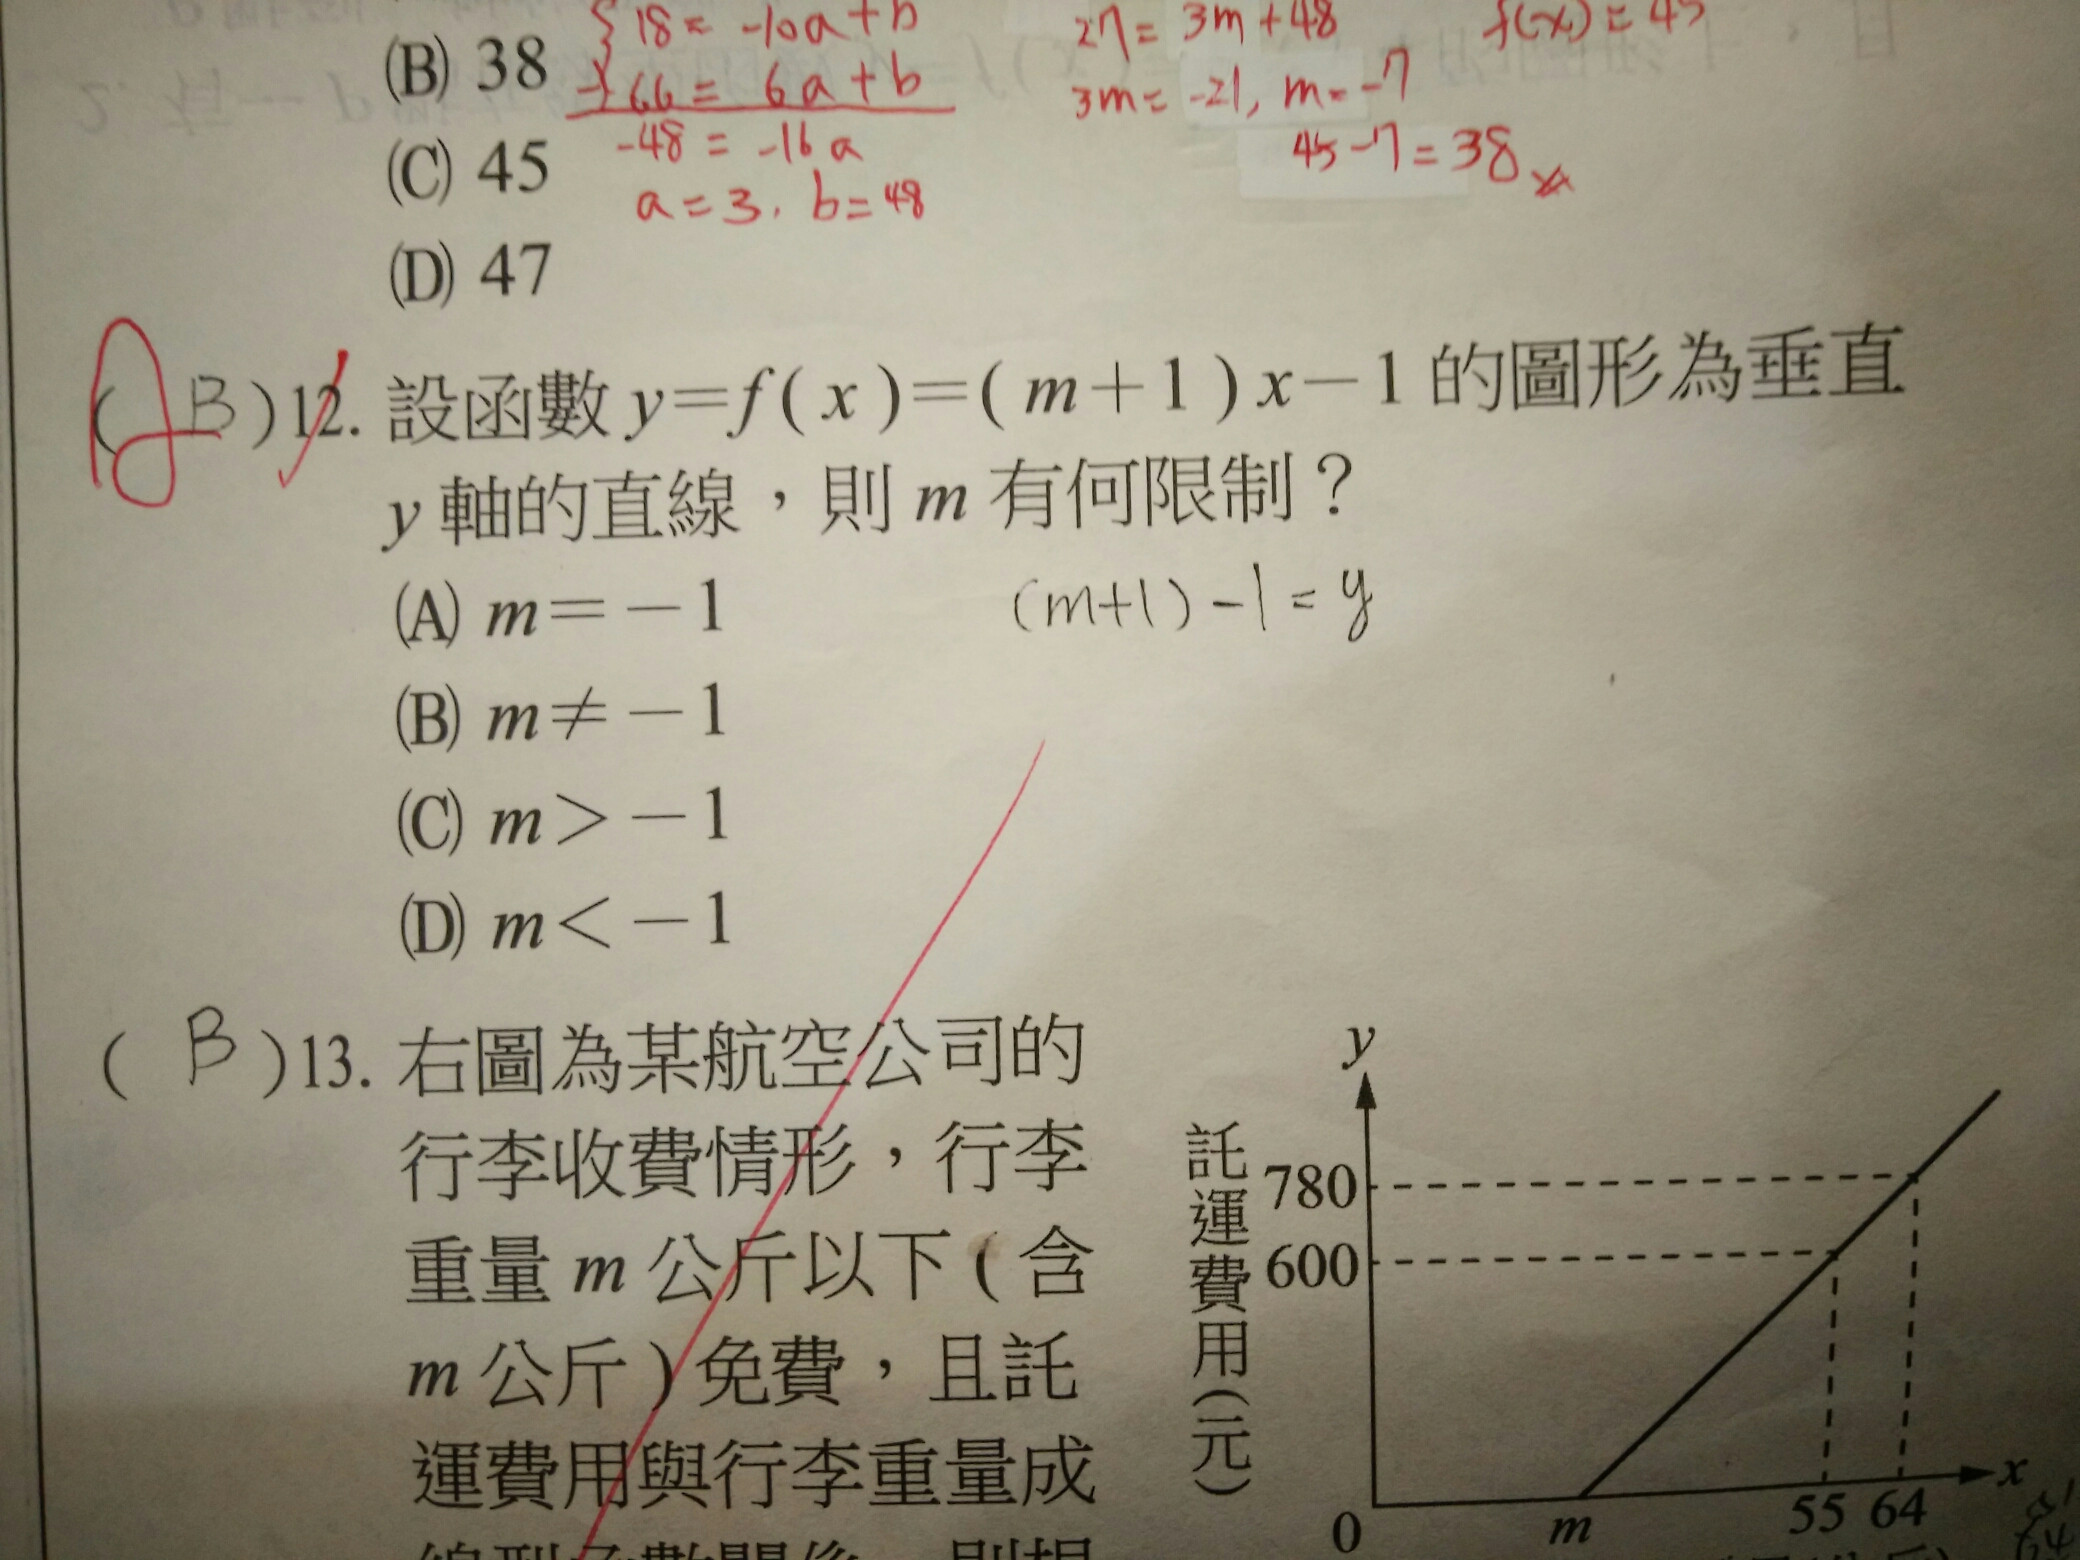 (B) 38
18 = -10a + b
66 = 6a + b
-48 = -16a
a = 3, b = 48
27 = 3m + 48
3m = -21, m = -7
f(x) = 45
45 - 7 = 38
(C) 45
(D) 47
( B )12. 設函數 y=f( x )=( m+1 ) x-1 的圖形為垂直
y 軸的直線，則 m 有何限制？
(A) m=-1
(m+1) - 1 = y
(B) m≠-1
(C) m>-1
(D) m<-1
( B )13. 右圖為某航空公司的
行李收費情形，行李
重量 m 公斤以下 ( 含
m 公斤 ) 免費，且託
運費用與行李重量成
y
託運費用(元)
780
600
0
m
55 64
x